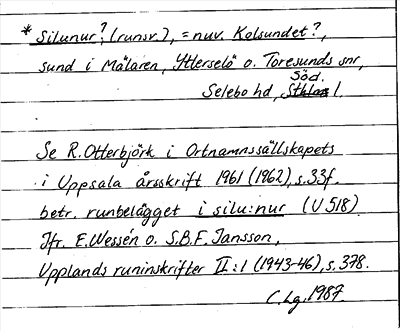 * Silunur? (runsv.), = nuv. Kolsundet?,
sund i Mälaren, Ytterselö o. Toresunds snr,
Selebo hd, Söd. l.
Se R. Otterbjörk i Ortnamnssällskapets
i Uppsala årsskrift 1961 (1962), s. 33f.
betr. runbelägget i silu:nur (U 518).
Jfr. E. Wessén o. S.B.F. Jansson,
Upplands runinskrifter II:1 (1943-46), s. 378.
C. Lg. 1987.